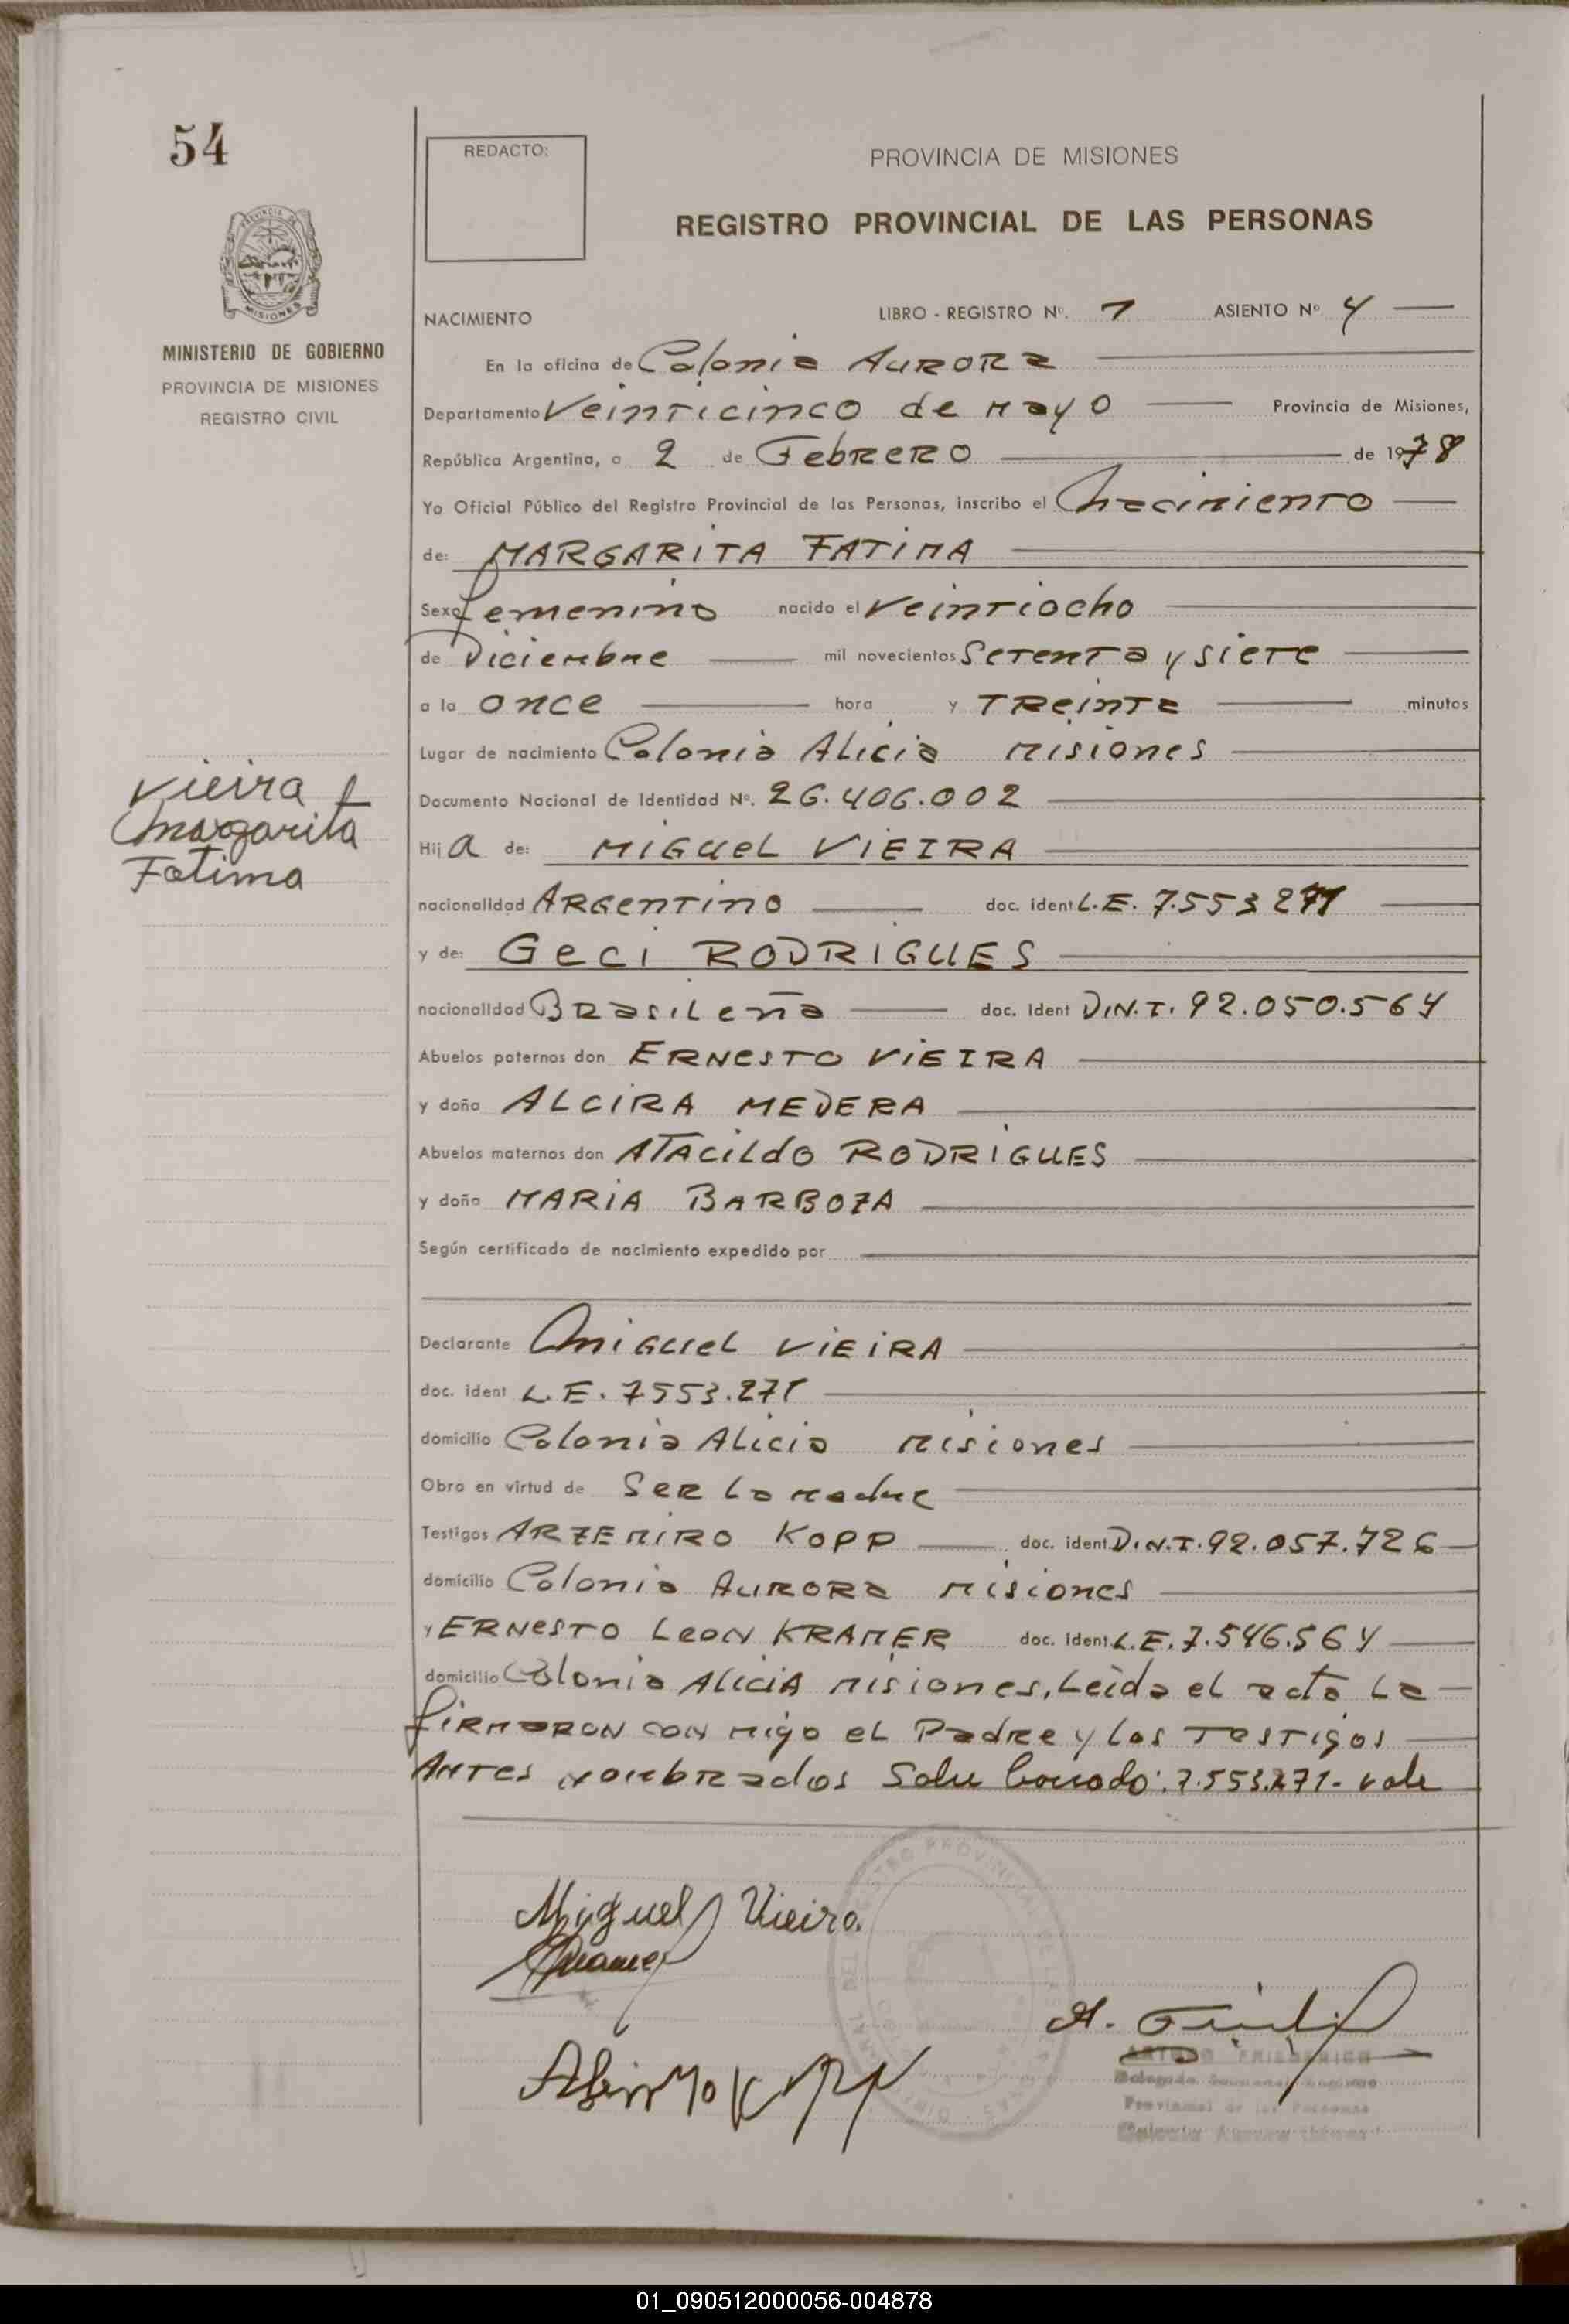 54
REDACTO:
PROVINCIA DE MISIONES
REGISTRO PROVINCIAL DE LAS PERSONAS
PROVINCIA DE
MISIONES
MINISTERIO DE GOBIERNO
PROVINCIA DE MISIONES
REGISTRO CIVIL
NACIMIENTO LIBRO - REGISTRO Nº. 1 ASIENTO Nº 4
En la oficina de Colonia AURORA
Departamento Veinticinco de Mayo Provincia de Misiones,
República Argentina, a 2 de Febrero de 1978
Yo Oficial Público del Registro Provincial de las Personas, inscribo el Naciniento
de: MARGARITA FATIMA
Sexo femenino nacido el Veintiocho
de Diciembre mil novecientos Setenta y siete
a la once hora y Treinta minutos
Lugar de nacimiento Colonia Alicia Misiones
Vieira
Margarita
Fatima
Documento Nacional de Identidad Nº. 26.406.002
Hija de: MIGUEL VIEIRA
nacionalidad ARGENTINO doc. ident L.E. 7.553 271
y de: GECI RODRIGUES
nacionalidad Brasileña doc. ident D.N.I. 92.050.564
Abuelos paternos don ERNESTO VIEIRA
y doña ALCIRA MEDERA
Abuelos maternos don ATACILDO RODRIGUES
y doña MARIA BARBOZA
Según certificado de nacimiento expedido por
Declarante Miguel VIEIRA
doc. ident L.E. 7553.271
domicilio Colonia Alicia Misiones
Obra en virtud de Ser la madre
Testigos ARZEMIRO KOPP doc. ident D.N.I. 92.057.726
domicilio Colonia AURORA Misiones
y ERNESTO LEON KRAMER doc. ident L.E. 7.546.564
domicilio Colonia ALICIA Misiones, Leida el acta la
firmaron con migo el Padre y los Testigos
Antes nombrados Sobre borrado: 7.553.271- vale
Miguel Vieira
A.
ARTURO FRIEDERICH
Provincial de las Personas
Colonia Aurora
01_090512000056-004878